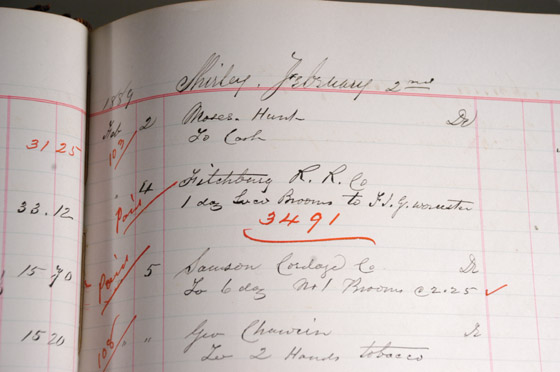 Shirley, February 2nd
1889
Feb 2 Moses Hunt Dr
109 To Cash
31 25
" 4 Fitchburg R. R. Co
Paid 1 doz Brooms to F.J.G.
33.12
3491
Paid 5 Samson Cordage Co Dr
15 70
To 6 doz No 1 Brooms @ 2.25 ✓
" " Geo Dr
15 20
108 To 2 Hands tobacco